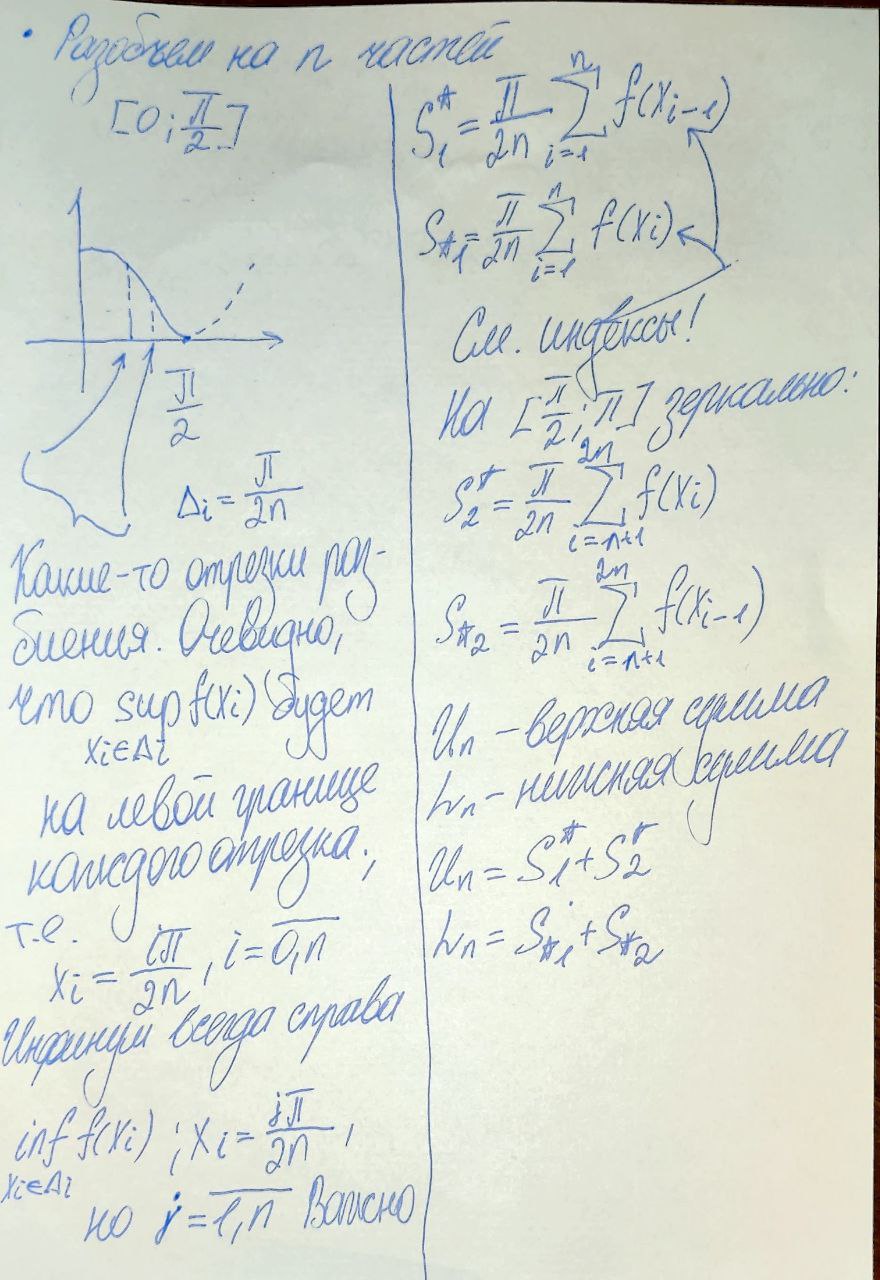 • Разобъем на n частей
[0; π/2]
π/2
Δi = π/2n
Какие-то отрезки раз-
биения. Очевидно,
что sup f(xi) будет
xi∈Δi
на левой границе
каждого отрезка.,
т.е.
xi = iπ/2n, i = 0,n
Инфинум всегда справа
inf f(xi) ; xi = jπ/2n,
xi∈Δi
но j = 1,n Важно
S₁* = π/2n ∑_{i=1}^{n} f(xi-1)
S*₁ = π/2n ∑_{i=1}^{n} f(xi)
См. индексы!
На [π/2; π] зеркально:
S₂* = π/2n ∑_{i=n+1}^{2n} f(xi)
S*₂ = π/2n ∑_{i=n+1}^{2n} f(xi-1)
Un – верхняя сумма
Ln – нижняя сумма
Un = S₁* + S₂*
Ln = S*₁ + S*₂